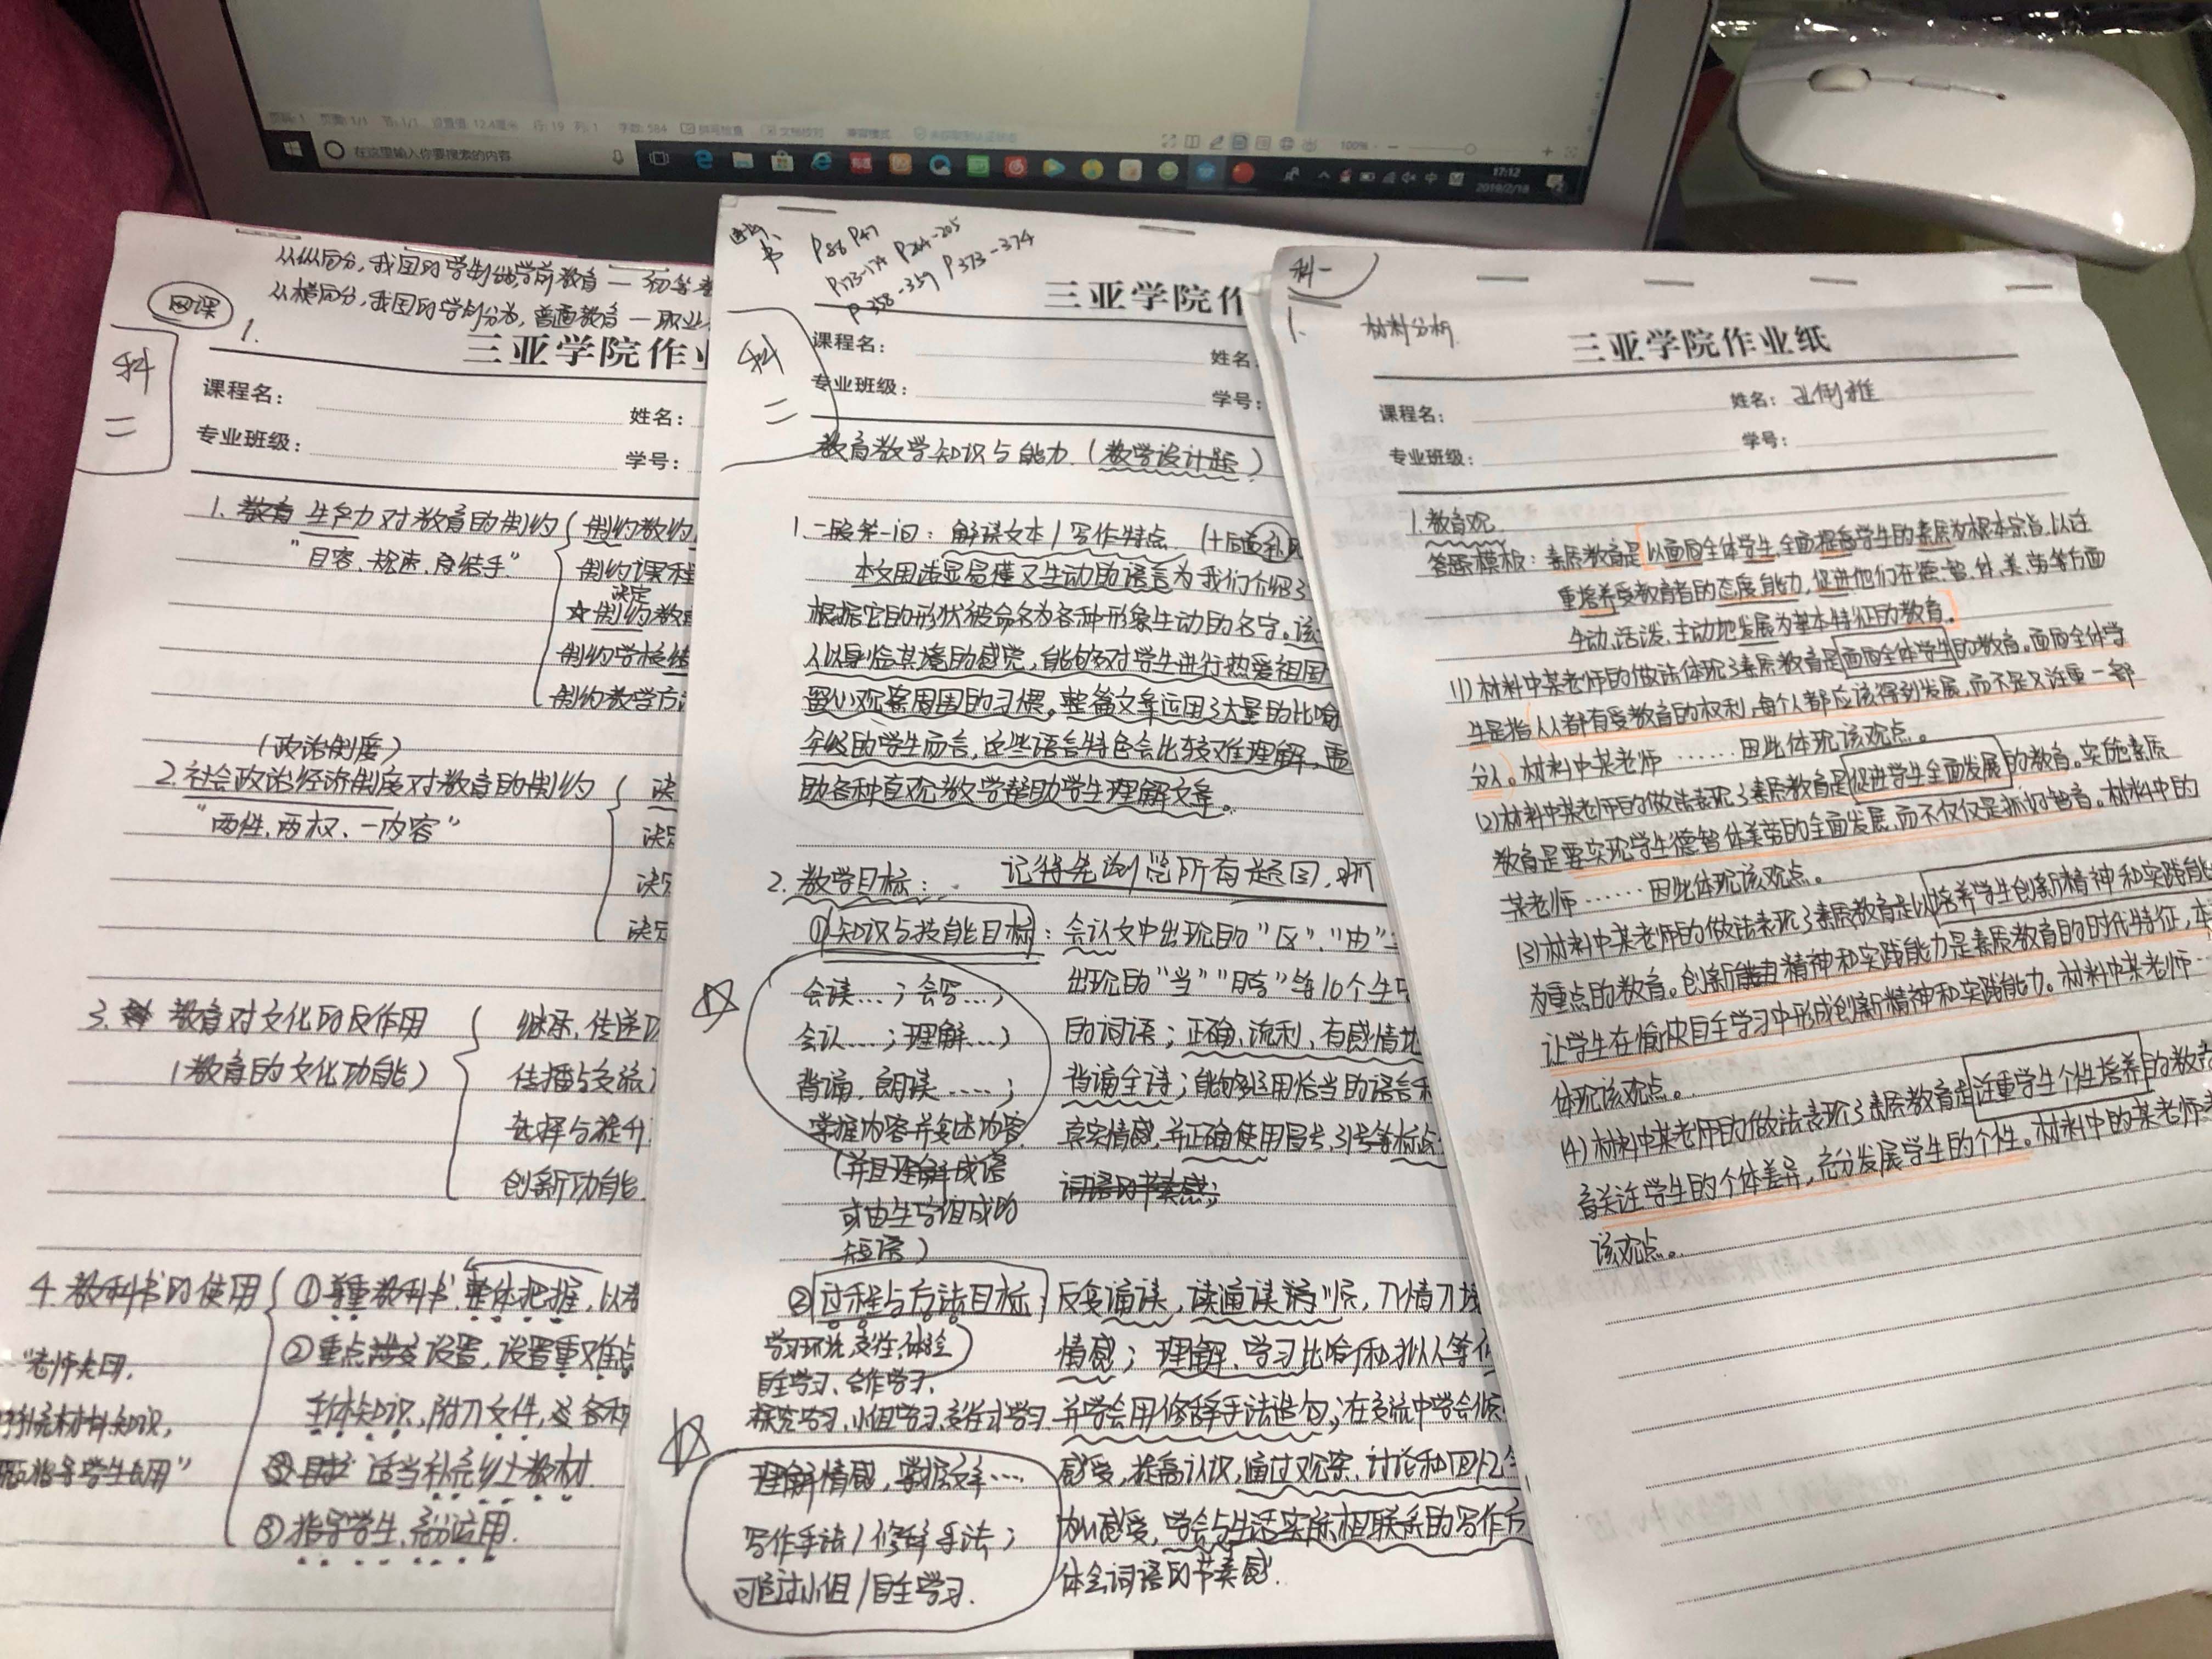 页面: 1/1 节: 1/1 设置值: 12.4厘米 行: 19 列: 1 字数: 584 拼写检查 文档校对 兼容模式
100%
在这里输入你要搜索的内容
中
17:12
2019/2/18
网课
从纵向分,我国的学制包学前教育 — 初等
从横向分,我国的学制分为,普通教育 — 职业
1.
科二
三亚学院作业
课程名:
姓名:
专业班级:
学号:
1. 教育 生产力对教育的制约
"目容、规速、
制约教
制约课程
决定
☆制约教
制约学校结
制约教学方
(政治制度)
2. 社会政治经济制度对教育的制约
"两性、两权、一内容"
决
决定
决定
决定
3. 教育对文化的反作用
(教育的文化功能)
继承、传递
传播与交流
选择与提升
创新功能
4. 教科书的使用
①尊重教科书,整体把握,以
②重点 设置,设置重难点
主体知识,附加文件,
适当补充乡土教材
③指导学生,充分运用.
书
P86 P47
P173-174 P204-205
P358-359 P373-374
科二
三亚学院作
课程名:
姓名:
专业班级:
学号:
教育教学知识与能力.(教学设计题)
1. 一般第一问: 解读文本/写作特点
本文用浅显易懂又生动的语言为我们介绍了
根据它的形状被命名为各种形象生动的名字。该
人以身临其境的感觉,能够对学生进行热爱祖国
留心观察周围的习惯。整篇文章运用了大量的比喻
年级的学生而言,这些语言特色会比较难理解,需
助各种直观教学帮助学生理解文章。
2. 教学目标:
记得先浏览所有题目,
①知识与技能目标: 会认文中出现的"区"、"由"
出现的"当""晴"等10个生字
的词语;正确、流利、有感情地
背诵全诗;能够运用恰当的语言和
真实情感,并正确使用冒号,引号等标点
词语的节奏感;
会读…;会写…;
会认…;理解…;
背诵、朗读……;
掌握内容并复述内容.
(并且理解成语
或由生字组成的
短语)
②过程与方法目标: 反复诵读,读通读顺,
情感;理解、学习比喻和拟人等
并学会用修辞手法造句;在交流中学会
感受,提高认识,通过观察、讨论和回忆
加感受,学会与生活实际相联系的写作方
体会词语的节奏感.
自主学习、合作学习、
探究学习、小组学习、
理解情感,掌握文章…
写作手法/修辞手法;
可通过小组/自主学习.
科一
1. 材料分析
三亚学院作业纸
课程名:
姓名:
专业班级:
学号:
1. 教育观
答题模板: 素质教育是以面向全体学生,全面提高学生的素质为根本宗旨,以注
重培养受教育者的态度能力,促进他们在德、智、体、美、劳等方面
生动、活泼、主动地发展为基本特征的教育。
(1)材料中某老师的做法体现了素质教育是面向全体学生的教育。面向全体学
生是指人人都有受教育的权利,每个人都应该得到发展,而不是只注重一部
分人。材料中某老师……因此体现该观点。
(2)材料中某老师的做法表现了素质教育是促进学生全面发展的教育。实施素质
教育是要实现学生德智体美劳的全面发展,而不仅仅是抓好智育。材料中的
某老师……因此体现该观点。
(3)材料中某老师的做法表现了素质教育是以培养学生创新精神和实践能
为重点的教育。创新精神和实践能力是素质教育的时代特征,
让学生在愉快自主学习中形成创新精神和实践能力。材料中某老师…
体现该观点。
(4)材料中某老师的做法表现了素质教育是注重学生个性培养的教
育关注学生的个体差异,充分发展学生的个性。材料中的某老师
该观点。